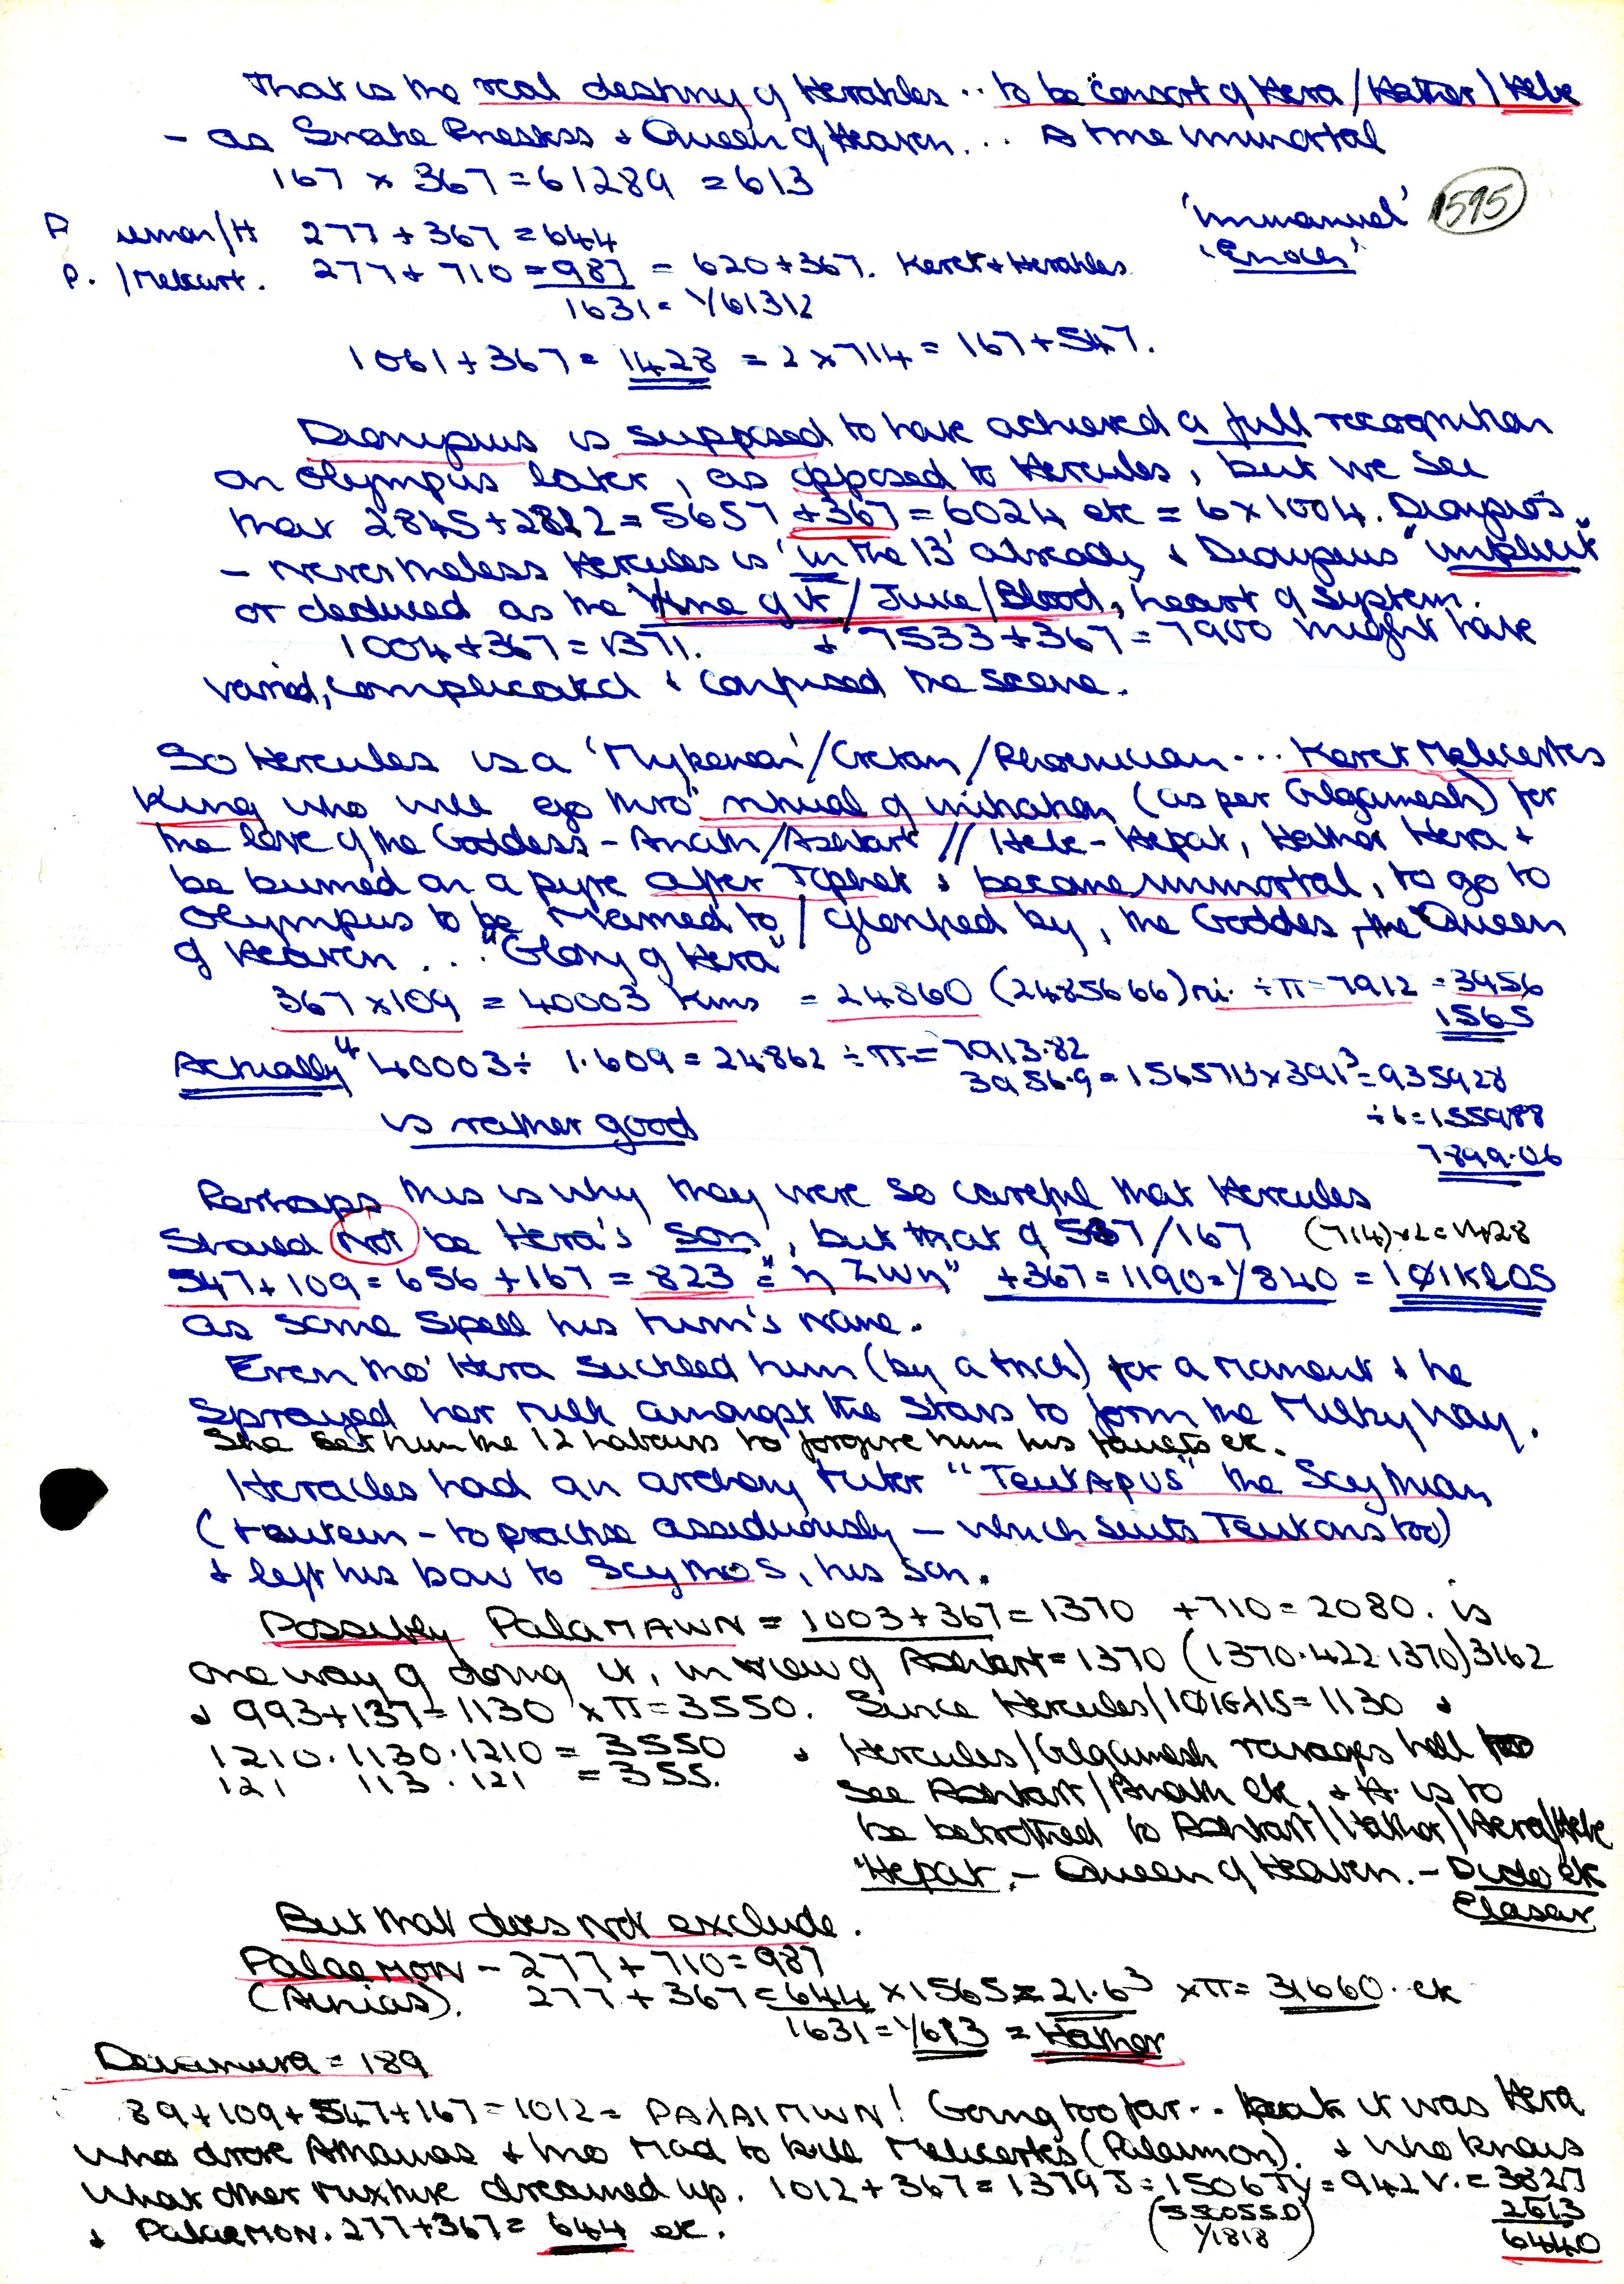 That is the real destiny of Herakles .. to be consort of Hera / Hathor / Hebe
- as Snake Priestess + Queen of Heaven... A true immortal
167 x 367 = 61289 = 613
'Immanuel' 595
/H 277 + 367 = 644
'Enoch'
P. /Melkart. 277 + 710 = 987 = 620 + 367. Keret + Herakles
1631 = 1/61312
1061 + 367 = 1428 = 2 x 714 = 167 + 547.
Dionysus is supposed to have achieved a full recognition
on Olympus later, as opposed to Hercules, but we see
that 2845 + 2812 = 5657 + 367 = 6024 etc = 6 x 1004. Dionysos
- nevertheless Hercules is 'in the 13' already, + Dionysus "implicit"
or deduced as the Vine of it / Juice / Blood, heart of system.
1004 + 367 = 1371. + 7533 + 367 = 7900 might have
varied, complicated + confused the scene.
So Hercules is a 'Mykenai' / Cretan / Phoenician ... Keret Melicertes
King who will go thro' ritual of initiation (as per Gilgamesh) for
the love of the Goddess - Anath / Ashtart // Hebe - Hepat, Hathor Hera +
be burned on a pyre after Tophet + become immortal, to go to
Olympus to be Married to / glorified by, the Goddess, the Queen
of Heaven ... "Glory of Hera"
367 x 109 = 40003 Kms = 24860 (2485666) mi. ÷ π = 7912 = 3956
1565
Actually 40003 ÷ 1.609 = 24862 ÷ π = 7913.82
3956.9 = 1565713 x 391³ = 935928
÷ 6 = 155988
is rather good
7899.06
Perhaps this is why they were so careful that Hercules
should not be Hera's son, but that of 547/167 (714) x 2 = 1428
547 + 109 = 656 + 167 = 823 = "η ZWη" + 367 = 1190 = 1/840 = IΦIKLOS
as some spell his twin's name.
Even tho' Hera suckled him (by a trick) for a moment + he
sprayed her milk amongst the stars to form the Milky Way.
She set him the 12 labours to forgive him his faults etc.
Heracles had an archery tutor "TeutApus" the Scythian
(teutein - to practise assiduously - which suits Teutons too)
+ left his bow to Scythos, his son.
Possibly PalaMAWN = 1003 + 367 = 1370 + 710 = 2080. is
one way of doing it, in view of Ashtart = 1370 (1370.422.1370) 3162
+ 993 + 137 = 1130 x π = 3550. Since Hercules / = 1130 +
1210.1130.1210 = 3550 + Hercules / Gilgamesh ravages hell to
121 113.121 = 355. see Ashtart / Anath etc + H. is to
be betrothed to Ashtart / Hathor / Hera / Hebe
"Hepat, - Queen of Heaven. - Dido etc
Elasar
But that does not exclude.
PalaeMON - 277 + 710 = 987
277 + 367 = 644 x 1565 = 21.6³ x π = 31660. etc
1631 = 1/613 = Hathor
Deianira = 189
89 + 109 + 547 + 167 = 1012 = PAλAIMWN! Going too far .. it was Hera
who drove Athamas + Ino mad to kill Melicertes (Palaimon). + who knows
what other mixture dreamed up. 1012 + 367 = 1379 J = 1506 Ty = 942 V. = 3827
(550550) 2613
+ PalaeMON. 277 + 367 = 644 etc. 1/1818 6440